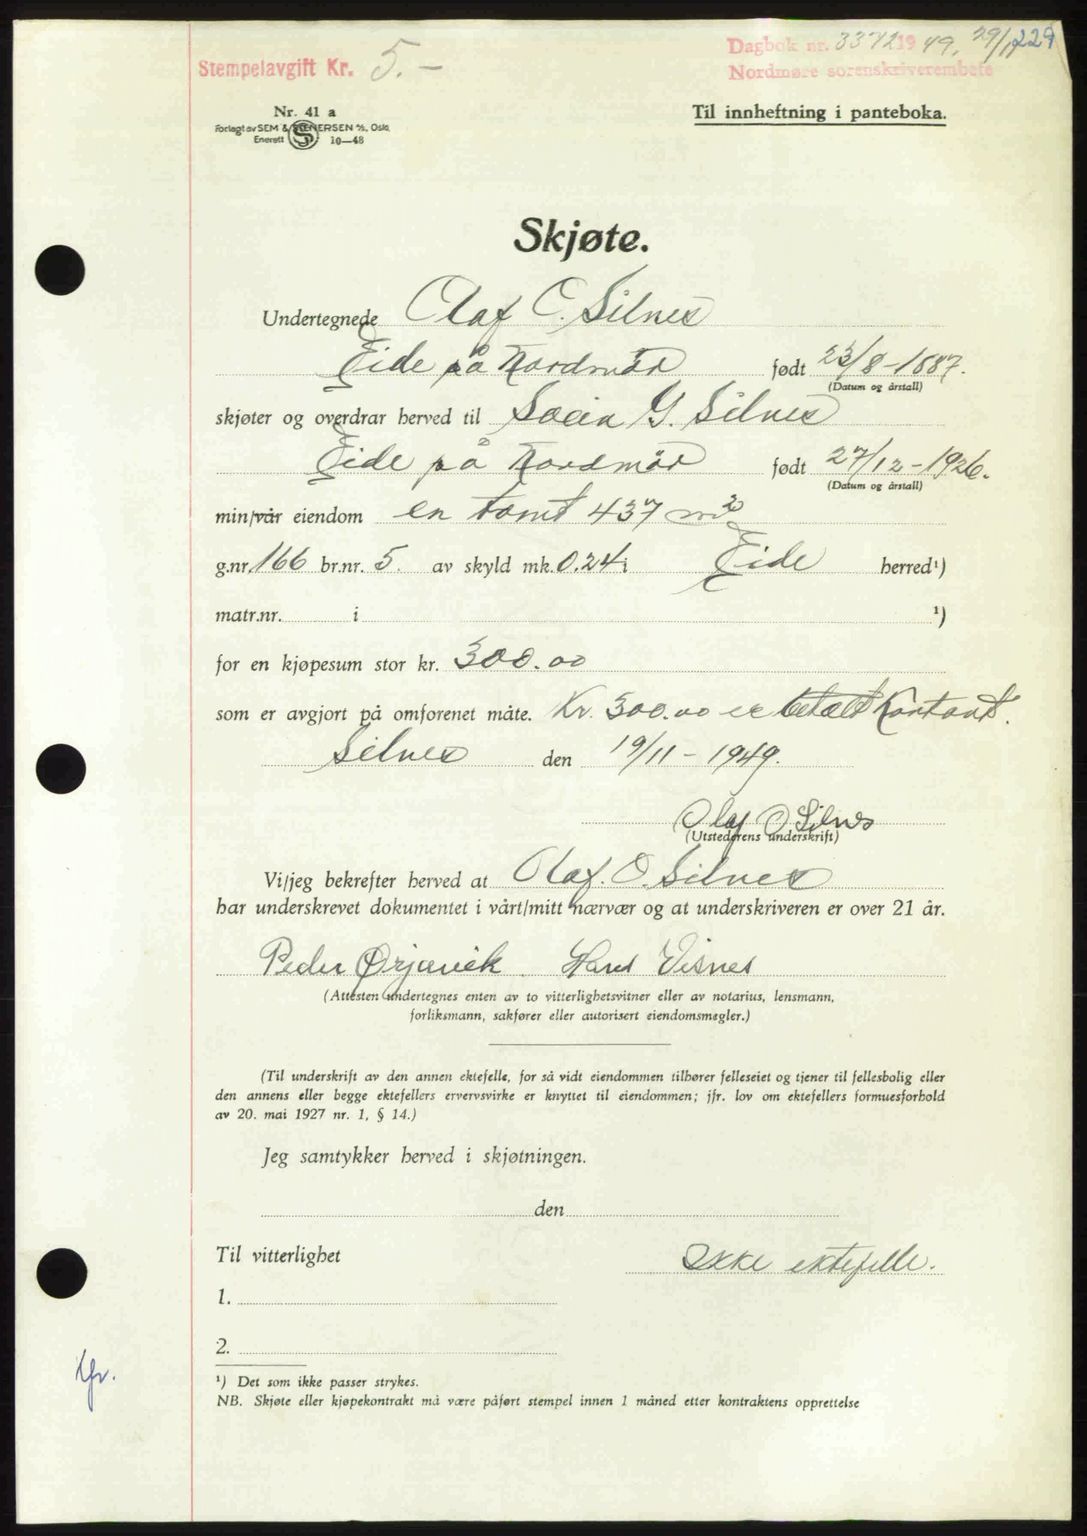 Stempelavgift Kr. 5.-
Dagbok nr. 3372 1949, 29/11 229
Nordmøre sorenskriverembete
Nr. 41 a
Forlagt av SEM & STENERSEN A/S, Oslo.
Enerett S 10—48
Til innheftning i panteboka.
Skjøte.
Undertegnede Olaf O. Silnes
Eide på Nordmör født 23/8-1887.
(Datum og årstall)
skjøter og overdrar herved til G. Silnes
Eide på Nordmör født 27/12-1926.
(Datum og årstall)
min/vår eiendom en tomt 437 m2
g.nr. 166 br.nr. 5. av skyld mk. 0.24 i Eide herred¹)
matr.nr. i ¹)
for en kjøpesum stor kr. 300.00
som er avgjort på omforenet måte. Kr. 300.00 er betalt Kontant.
Silnes den 19/11-1949.
Olaf O Silnes
(Utstederens underskrift)
Vi/jeg bekrefter herved at Olaf. O. Silnes
har underskrevet dokumentet i vårt/mitt nærvær og at underskriveren er over 21 år.
Peder Ørjavik. Hans Visnes
(Attesten undertegnes enten av to vitterlighetsvitner eller av notarius, lensmann,
forliksmann, sakfører eller autorisert eiendomsmegler.)
(Til underskrift av den annen ektefelle, for så vidt eiendommen tilhører felleseiet og tjener til fellesbolig eller
den annens eller begge ektefellers ervervsvirke er knyttet til eiendommen; jfr. lov om ektefellers formuesforhold
av 20. mai 1927 nr. 1, § 14.)
Jeg samtykker herved i skjøtningen.
den
Til vitterlighet Ikke ektefelle.
1.
2.
¹) Det som ikke passer strykes.
NB. Skjøte eller kjøpekontrakt må være påført stempel innen 1 måned etter kontraktens opprettelse